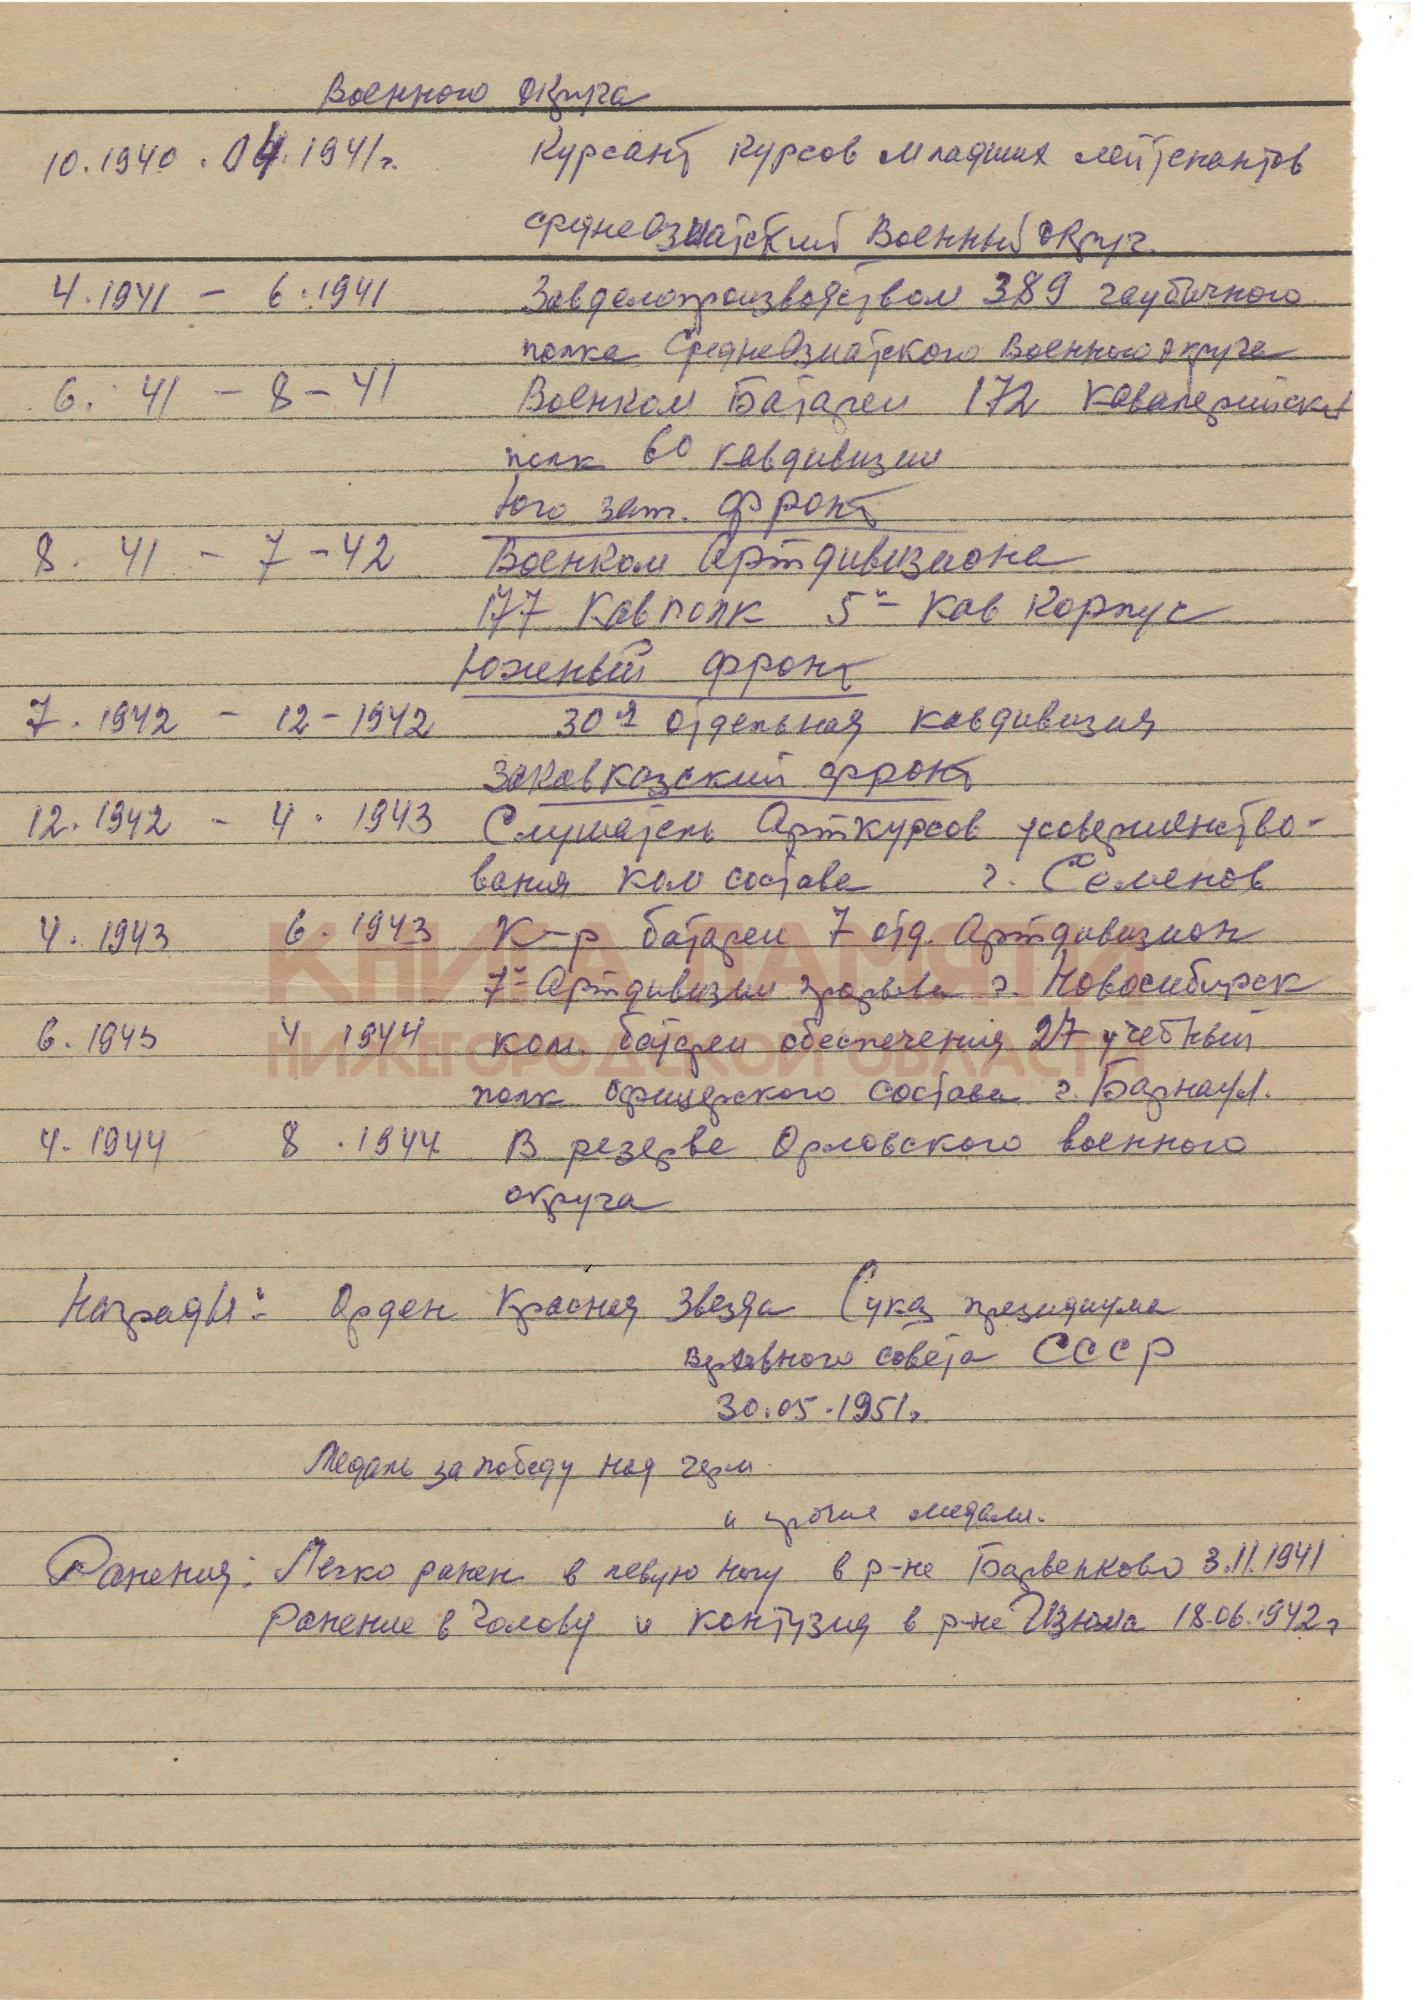 Военного округа
10.1940. 04.1941г. Курсант курсов младших лейтенантов
среднеазиатский Военный округ.
4.1941 – 6.1941 Завделопроизводством 389 гаубичного
полка Среднеазиатского Военного округа
6. 41 – 8 – 41 Военком Батареи 172 кавалерийский
полк 60 кавдивизии
Юго зап. фронт
8. 41 – 7 – 42 Военком Артдивизиона
177 Кавполк 5й Кав Корпус
Южный фронт
7. 1942 – 12 – 1942 30я отдельная кавдивизия
Закавказский фронт
12. 1942 – 4. 1943 Слушатель Арткурсов усовершенство-
вания ком состава г. Семенов
4. 1943 6. 1943 К-р батареи 7 отд. Артдивизион
7й Артдивизии прорыва г. Новосибирск
6. 1943 4 1944 ком. батареи обеспечения 27 учебный
полк офицерского состава г. Барнаул.
4. 1944 8. 1944 В резерве Орловского военного
округа
КНИГА ПАМЯТИ
НИЖЕГОРОДСКОЙ ОБЛАСТИ
Награды: Орден Красная Звезда (указ президиума
верховного совета СССР
30.05.1951г.
Медаль за победу над герм.
и прочие медали.
Ранения: Легко ранен в левую ногу в р-не Барвенково 3.11.1941
Ранение в голову и контузия в р-не Изюма 18.06.1942г